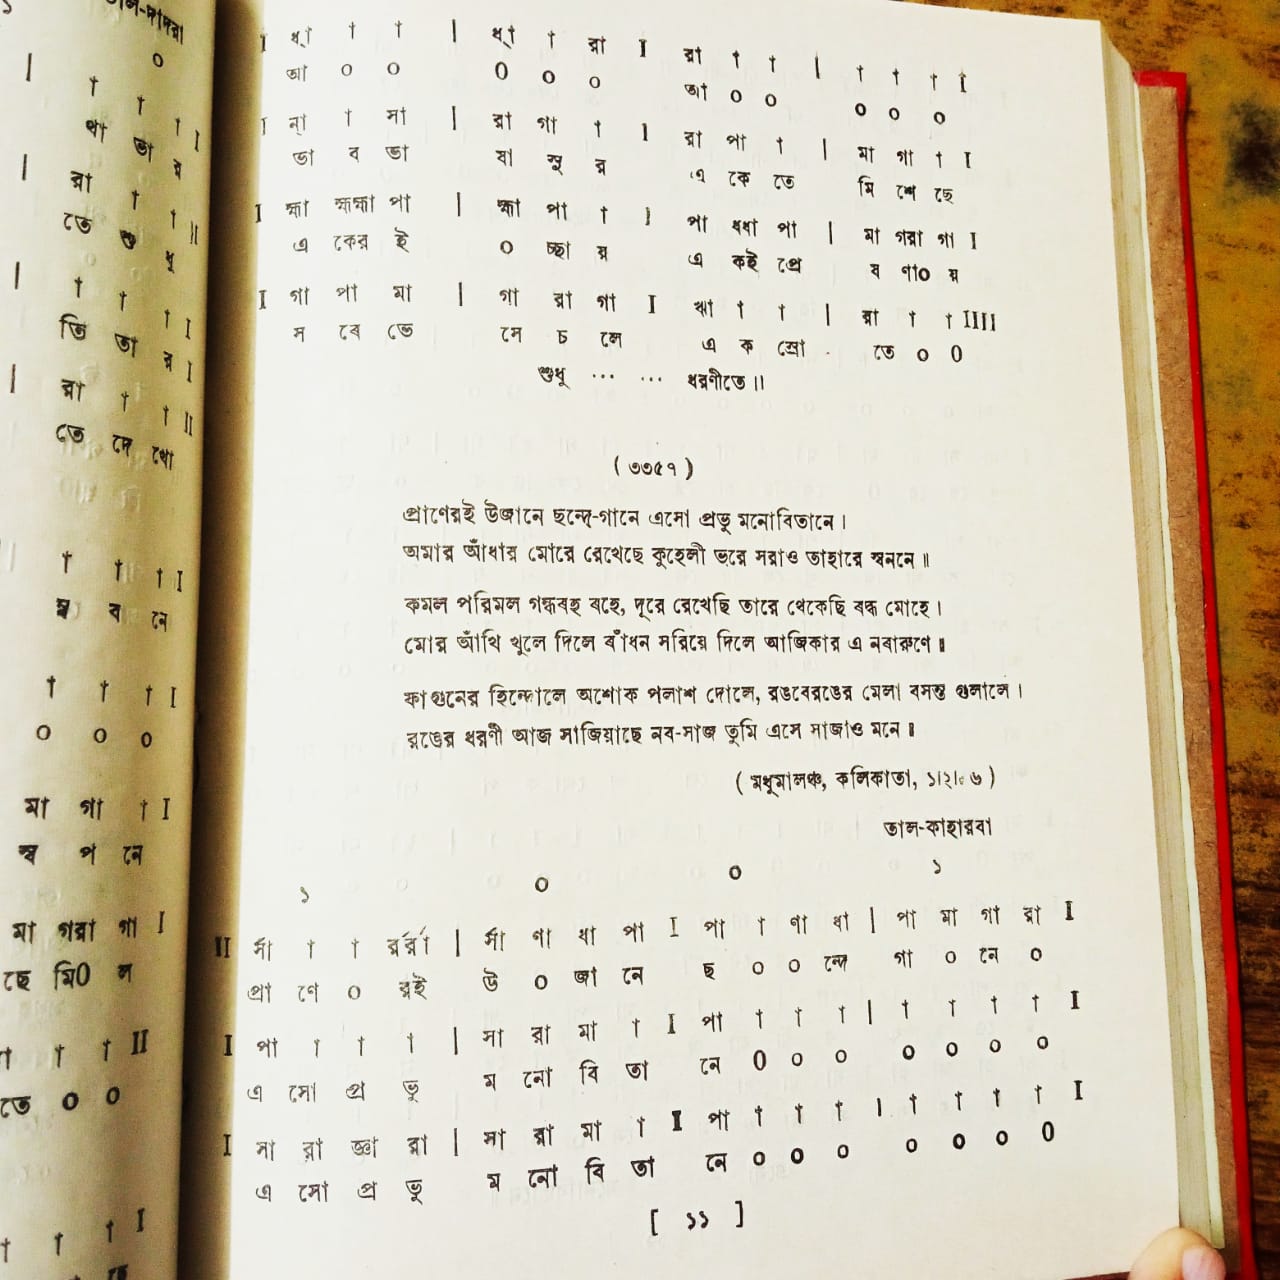 তাল-দাদরা
০
| † † † I
থা তা য়
| রা † † II
তে শু ধু
| † † † I
তি তা র I
| রা † † II
তে দে খো
† † † I
স্ব ব নে
† † † I
০ ০ ০
মা গা † I
স্ব প নে
মা গরা গা I
ছে মি০ ল
† † † II
তে ০ ০
† † † I
I ধ্া † † | ধ্া † রা I রা † † | † † † I
আ ০ ০ ০ ০ ০ আ ০ ০ ০ ০ ০
I ন্া † সা | রা গা † I রা পা † | মা গা † I
ভা ব ভা ষা সু র এ কে তে মি শে ছে
I হ্মা হ্মহ্মা পা | হ্মা পা † I পা ধধা পা | মা গরা গা I
এ কের ই ০ চ্ছা য় এ কই প্রে ষ ণা০ য়
I গা পা মা | গা রা গা I ঋা † † | রা † † IIII
স বে তে সে চ লে এ ক স্রো তে ০ ০
শুধু ... ... ধরণীতে॥
(৩৩৫৭)
প্রাণেরই উজানে ছন্দে-গানে এসো প্রভু মনোবিতানে।
অমার আঁধার মোরে রেখেছে কুহেলী ভরে সরাও তাহারে স্বননে॥
কমল পরিমল গন্ধবহ বহে, দূরে রেখেছি তারে থেকেছি বদ্ধ মোহে।
মোর আঁখি খুলে দিলে বাঁধন সরিয়ে দিলে আজিকার এ নবারুণে॥
ফাগুনের হিন্দোলে অশোক পলাশ দোলে, রঙবেরঙের মেলা বসন্ত গুলালে।
রঙের ধরণী আজ সাজিয়াছে নব-সাজ তুমি এসে সাজাও মনে॥
(মধুমালঞ্চ, কলিকাতা, ১।২।৮৬)
তাল-কাহারবা
১ ০ ০ ১
II র্সা † † র্রর্রা | র্সা ণা ধা পা I পা † ণা ধা | পা মা গা রা I
প্রা ণে ০ রই উ ০ জা নে ছ ০ ০ ন্দে গা ০ নে ০
I পা † † † | সা রা মা † I পা † † † | † † † † I
এ সো প্র ভু ম নো বি তা নে ০ ০ ০ ০ ০ ০ ০
I সা রা জ্ঞা রা | সা রা মা † I পা † † † | † † † † I
এ সো প্র ভু ম নো বি তা নে ০ ০ ০ ০ ০ ০ ০
[ ১১ ]